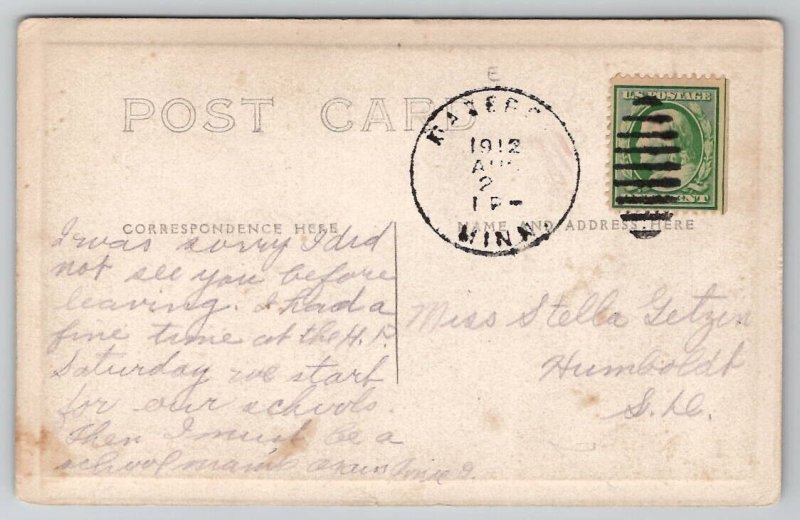 E
POST CARD
U.S. POSTAGE
1912
AUG
2
1 P-
MINN
CORRESPONDENCE HERE
NAME AND ADDRESS HERE
I was sorry I did
not see you before
leaving. I had a
fine time at the H. P.
Saturday we start
for our schools.
Then I must be a
school mam
Miss Stella Getzin
Humboldt
S. D.